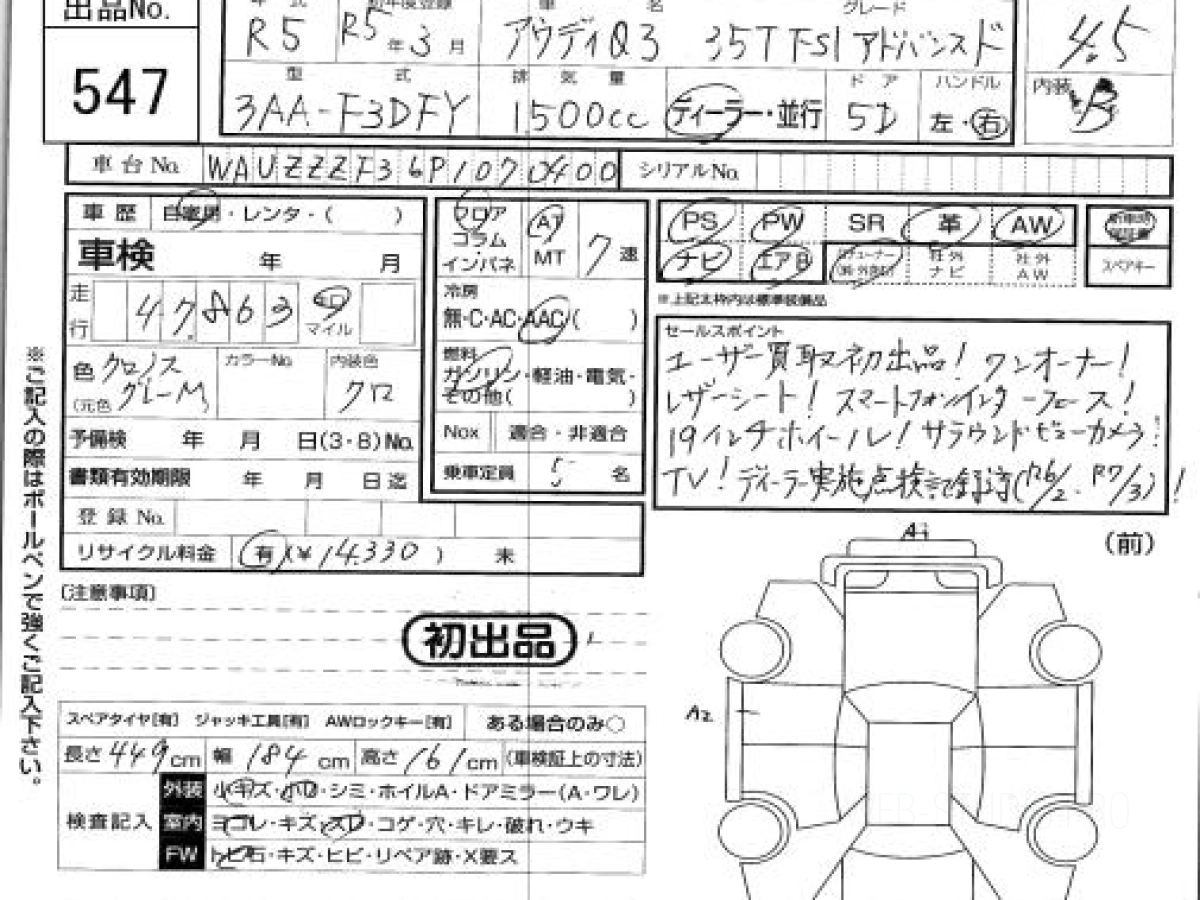 出品No.
547
年式 R5
初年度登録 R5年3月
車名 アウディQ3
グレード 35TFSIアドバンスド
4.5
型式 3AA-F3DFY
排気量 1500cc
ディーラー・並行
ドア 5D
ハンドル 左・右
内装 B
車台No. WAUZZZF36P1070400
シリアルNo.
車歴 自家用・レンタ・( )
車検 年 月
走行 47,863 キロ マイル
色 クロノスグレーM
(元色
カラーNo.
内装色 クロ
予備検 年 月 日(3・8)No.
書類有効期限 年 月 日迄
登録No.
リサイクル料金 有(¥14.330) 未
フロア
コラム
インパネ
AT
MT
7速
冷房
無・C・AC・AAC( )
燃料
ガソリン・軽油・電気・
その他( )
Nox 適合・非適合
乗車定員 5名
PS PW SR 革 AW
ナビ エアB 社外ナビ 社外AW
スペアキー
※上記太枠内は標準装備品
セールスポイント
ユーザー買取初出品!ワンオーナー!
レザーシート!スマートフォンインターフェース!
19インチホイール!サラウンドビューカメラ!
TV!ディーラー実施点検記録簿(R6/2.R7/3)!
※ご記入の際はボールペンで強くご記入下さい。
[注意事項]
初出品
A1
(前)
A2
スペアタイヤ[有] ジャッキ工具[有] AWロックキー[有] ある場合のみ○
長さ449cm 幅184cm 高さ161cm (車検証上の寸法)
検査記入
外装 小キズ・小凹・シミ・ホイルA・ドアミラー(A・ワレ)
室内 ヨゴレ・キズ・スレ・コゲ・穴・キレ・破れ・ウキ
FW トビ石・キズ・ヒビ・リペア跡・X要ス